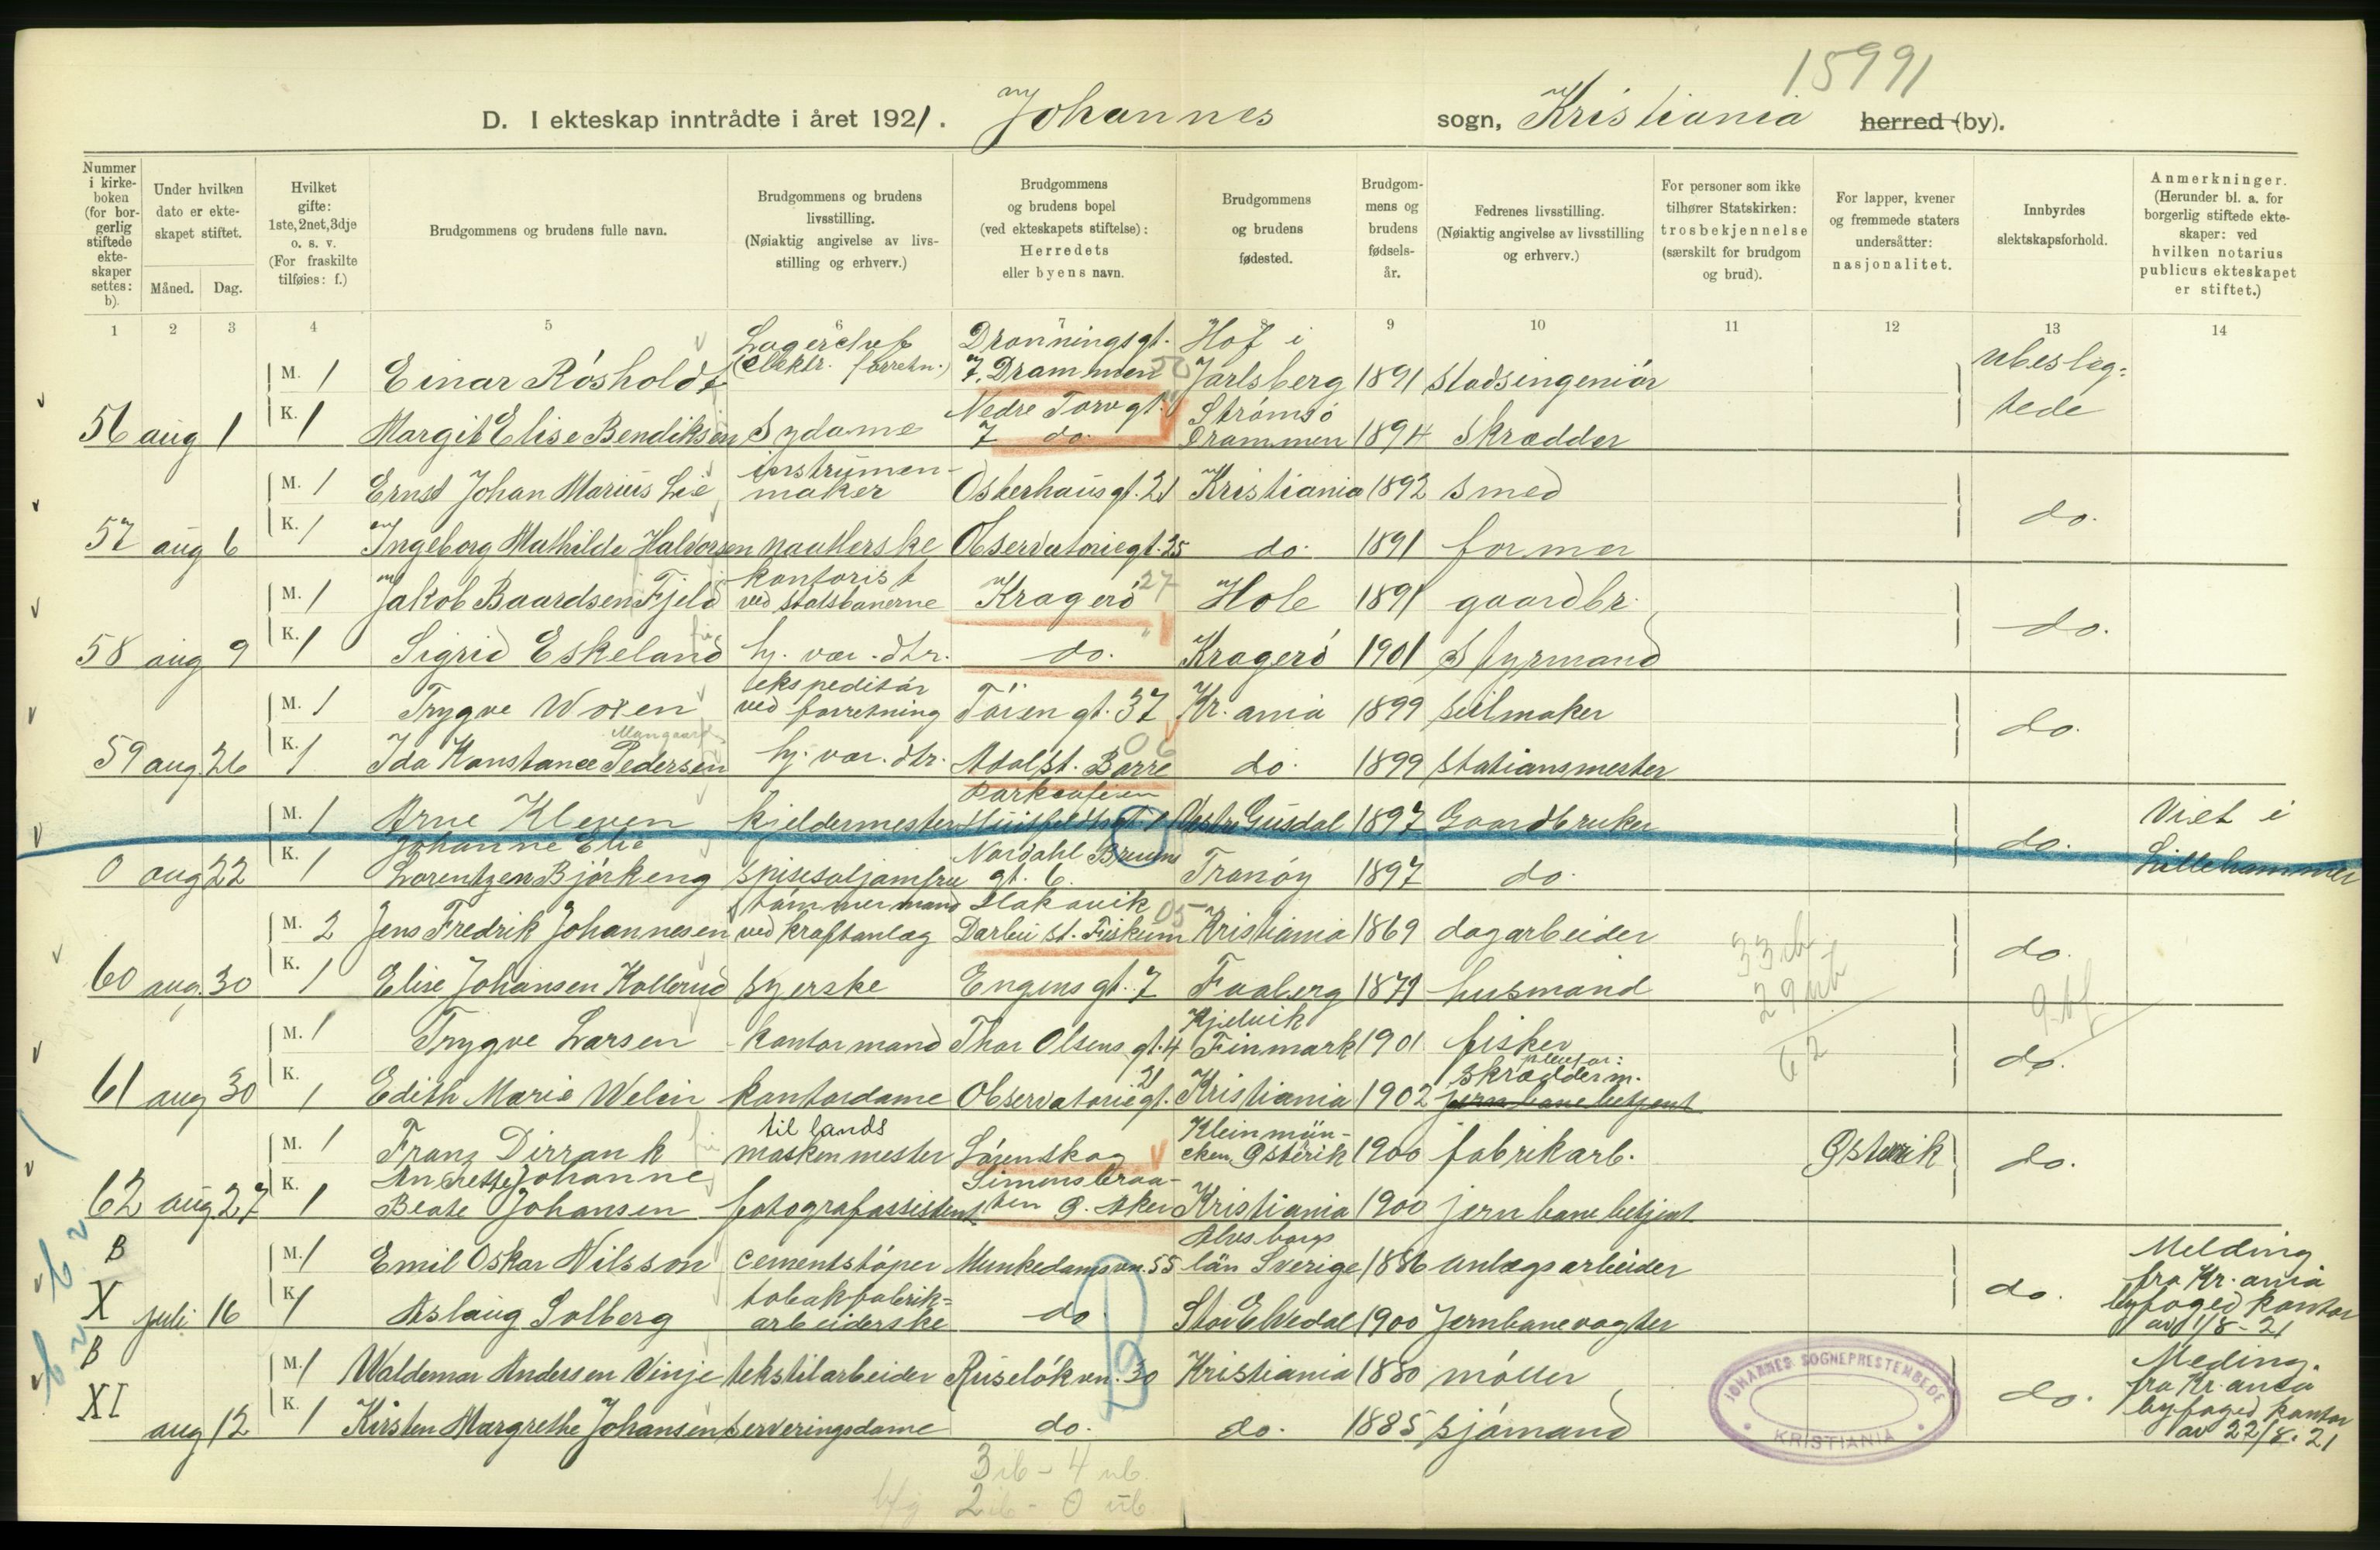 15991
D. I ekteskap inntrådte i året 1921. Johannes sogn, Kristiania herred (by).
Nummer i kirkeboken (for borgerlig stiftede ekteskaper settes: b).
Under hvilken dato er ekteskapet stiftet.
Måned. Dag.
Hvilket gifte: 1ste, 2net, 3dje o. s. v. (For fraskilte tilføies: f.)
Brudgommens og brudens fulle navn.
Brudgommens og brudens livsstilling. (Nøiaktig angivelse av livsstilling og erhverv.)
Brudgommens og brudens bopel (ved ekteskapets stiftelse): Herredets eller byens navn.
Brudgommens og brudens fødested.
Brudgommens og brudens fødselsår.
Fedrenes livsstilling. (Nøiaktig angivelse av livsstilling og erhverv.)
For personer som ikke tilhører Statskirken: trosbekjennelse (særskilt for brudgom og brud).
For lapper, kvener og fremmede staters undersåtter: nasjonalitet.
Innbyrdes slektskapsforhold.
Anmerkninger. (Herunder bl. a. for borgerlig stiftede ekteskaper: ved hvilken notarius publicus ekteskapet er stiftet.)
1 2 3 4 5 6 7 8 9 10 11 12 13 14
M. 1 Einar Rósholdt Lagerchef (elektr. forretn.) Dronningsgt. 7. Drammen 50 Hof i Jarlsberg 1891 stadsingeniór ubeslæg-
56 aug 1 K. 1 Margit Elise Bendiksen Sydame Nedre Torvgt. 7 do. Strómsó Drammen 1894 Skrædder tede
M. 1 Ernst Johan Marius Lie instrumen-maker Osterhausgt. 21 Kristiania 1892 smed
57 aug 6 K. 1 Ingeborg Mathilde Halvorsen naatlerske Observatoriegt. 25 do. 1891 former do.
M. 1 Jakob Baardsen Fjeld kontorist ved statsbanerne Krageró 27 Hole 1891 gaardbr.
58 aug 9 K. 1 Sigrid Eskeland hj. vær. dtr. do. Krageró 1901 Styrmand do.
M. 1 Trygve Woxen ekspeditór ved forretning Tóien gt. 37 Kr.ania 1899 seilmaker
59 aug. 26 K. 1 Ida Konstance Pedersen hj. vær. dtr. Adalst. Borre 06 do. 1899 stationsmester do.
M. 1 Arne Kleven kjeldermester Parkcafeen Huitfeldtsgt. Østre Gusdal 1897 Gaardbruker Viet i
0 aug 22 K. 1 Johanne Elie Lorentzen Bjórkeng spisesaljomfru Nordahl Bruuns gt. 6. Tranóy 1897 do. do. Lillehammer
M. 2 Jens Fredrik Johannesen tómmermand ved kraftanlæg Hakavik Darbu st. Fiskum 05 Kristiania 1869 dagarbeider
60 aug. 30 K. 1 Elise Johansen Kollerud syerske Engens gt. 7 Faaberg 1879 husmand do.
M. 1 Trygve Larsen kontormand Thor Olsens gt. 4 Kjelvik Finmark 1901 fisker
61 aug 30 K. 1 Edith Marie Welin kontordame Observatoriegt. 21 Kristiania 1902 skrædderm. jernbanebetjent do.
M. 1 Franz Dirrank til lands maskinmester Lórenskog Kleinmün-chen, Østerik 1900 fabrikarb. Østerrik
62 aug. 27 K. 1 Anerette Johanne Beate Johansen fotografassistent Simensbraa-ten Ø. Aker Kristiania 1900 jernbanebetjent do.
B M. 1 Emil Oskar Nilsson cementstóper Munkedamsvn. 55 Alvsborgs län Sverige 1886 anlægsarbeider Melding fra Kr.ania byfoged kontor av 1/8-21
X juli 16 K. 1 Aslaug Solberg tobakfabrik-arbeiderske do. Stor Elvedal 1900 Jernbanevogter do.
B M. 1 Waldemar Andersen Vinje tekstilarbeider Ruselókvn. 30 Kristiania 1880 móller Meding. fra Kr.ania byfoged kontor av 22/8. 21
XI aug 12 K. 1 Kirsten Margrethe Johansen serveringsdame do. do. 1885 sjómand do.
JOHANNES SOGNEPRESTEMBEDE
KRISTIANIA
3 ib - 4 ub.
2 ib - 0 ub